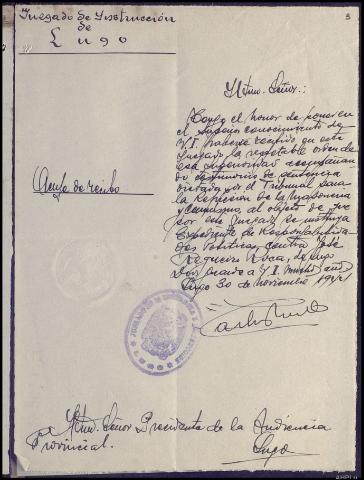 Juzgado de Instrucción
de
Lugo
3
Iltmo. Señor:
Tengo el honor de poner en
el superior conocimiento de
V.I. haberse recibido en este
Juzgado la respetable orden de
esa Superioridad acompañan
do testimonio de sentencia
dictada por el Tribunal para
la Represión de la Masonería
y Comunismo, al objeto de que
por este Juzgado se instruya
Expediente de Responsabilida
des Politicas, contra José
Regueiro Roca, de Lugo
Dios guarde a V.I. muchos años
Lugo 30 de noviembre 1941
Acuse de recibo
LUGO
Iltmo. Señor Presidente de la Audiencia
Provincial.
Lugo
AHPLU